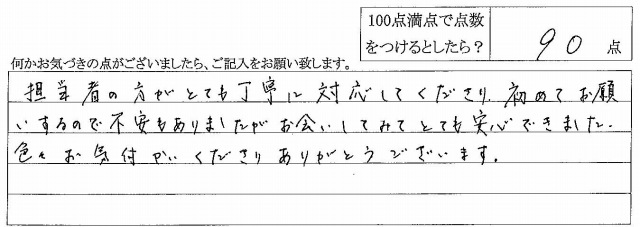 100点満点で点数
をつけるとしたら？ 90 点
何かお気づきの点がございましたら、ご記入をお願い致します。
担当者の方がとても丁寧に対応してくださり、初めてお願
いするので不安もありましたがお会いしてみてとても安心できました。
色々お気付かいくださりありがとうございます。